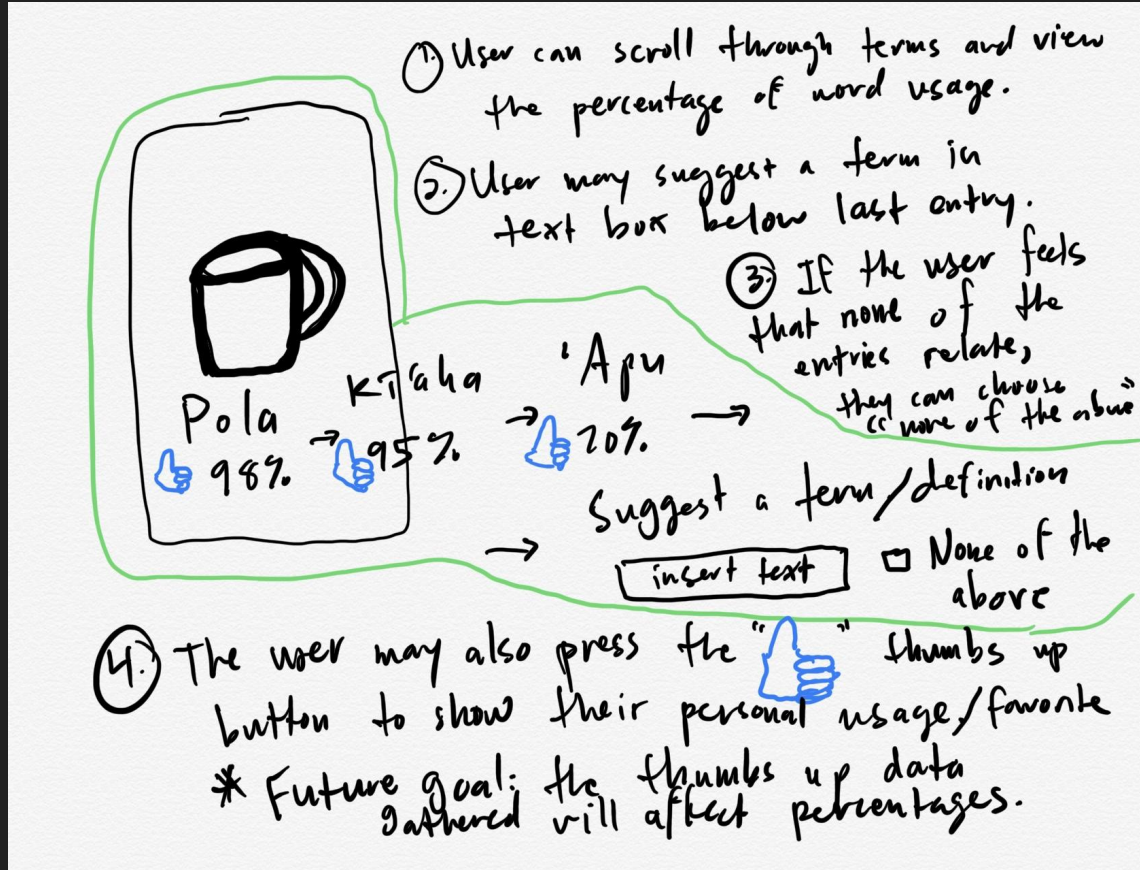 1. User can scroll through terms and view
the percentage of word usage.
2. User may suggest a term in
text box below last entry.
3. If the user feels
that none of the
entries relate,
they can choose
"none of the above"
Pola
98%
kīʻaha
95%
ʻApu
20%
Suggest a term/definition
insert text
None of the
above
4. The user may also press the " " thumbs up
button to show their personal usage/favorite
* Future goal: the thumbs up data
gathered will affect percentages.